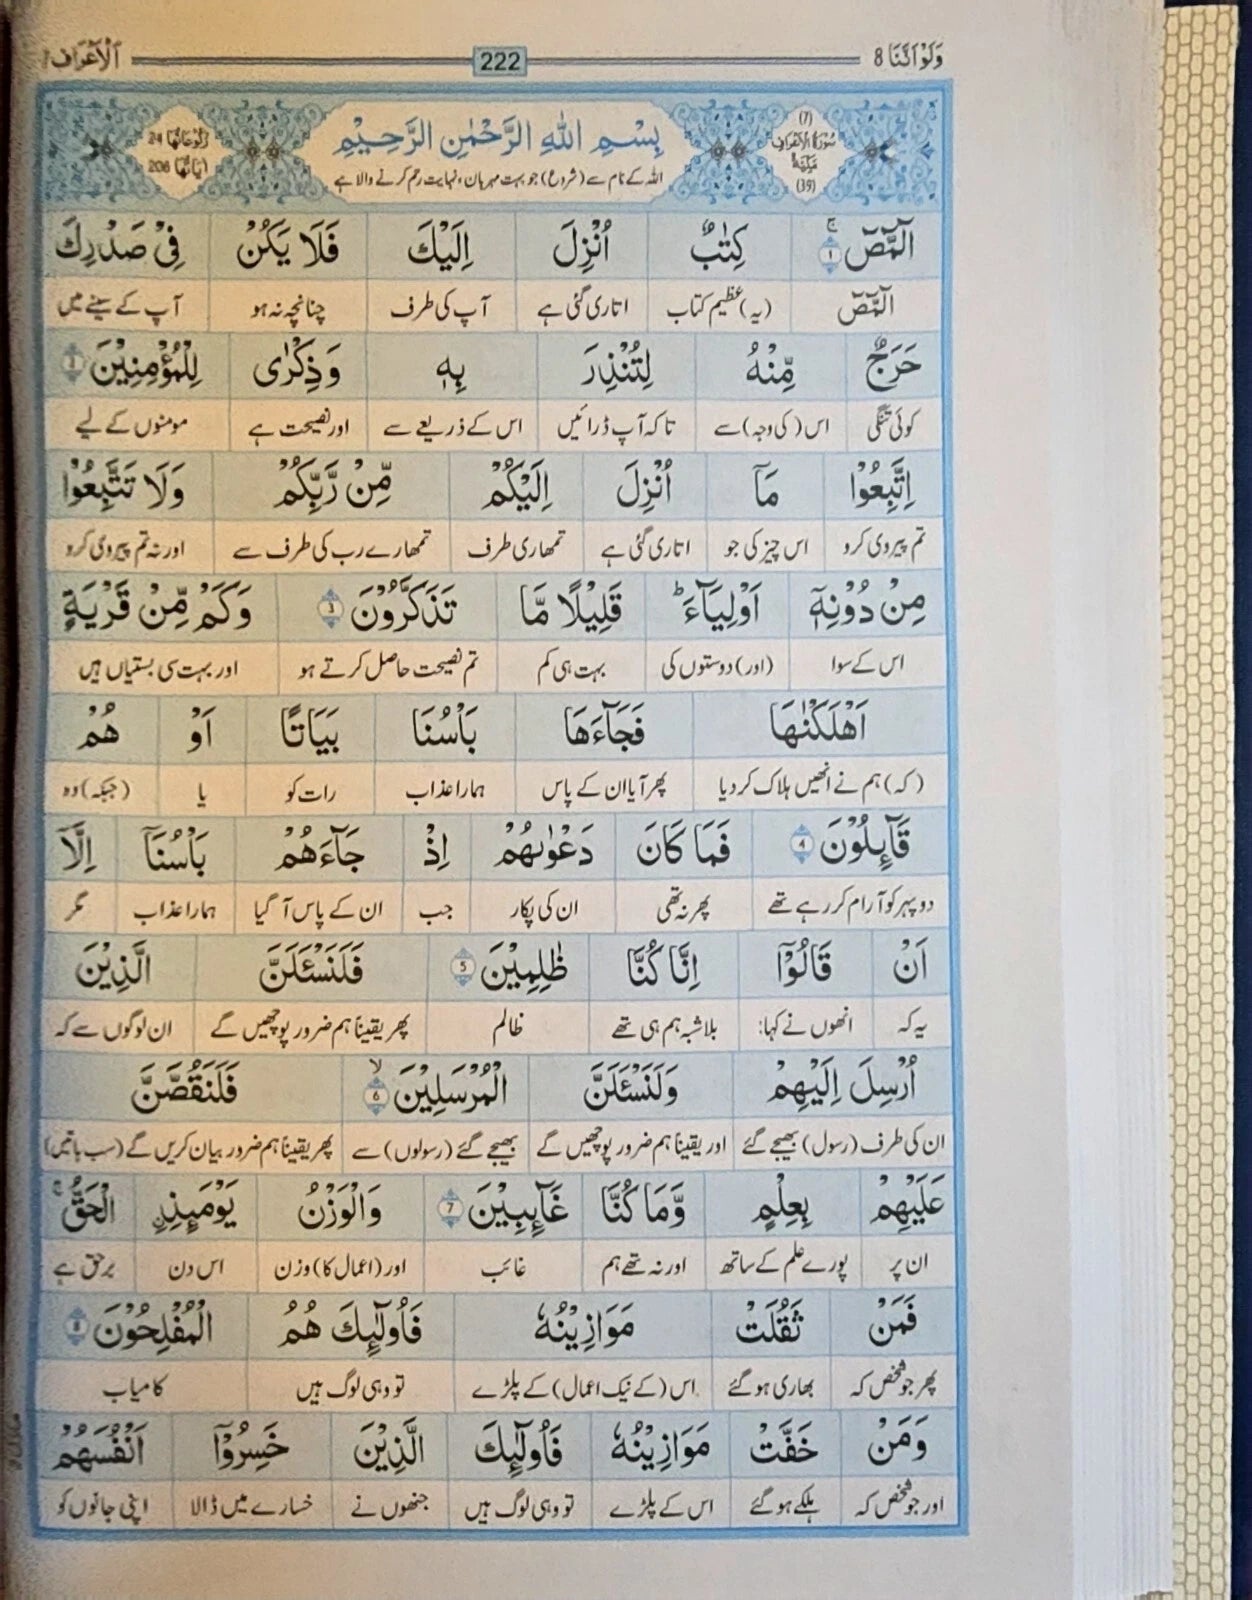 وَلَوْ اَنَّنَا 8
222
اَلْاَعْرَاف
(7)
سُوْرَةُ الْاَعْرَافِ
مَكِّيَّةٌ
(39)
بِسْمِ اللّٰهِ الرَّحْمٰنِ الرَّحِيْمِ
اللہ کے نام سے (شروع) جو بہت مہربان، نہایت رحم کرنے والا ہے
رُكُوْعَاتُهَا 24
اٰيَاتُهَا 206
الٓمّٓصٓ ۚ ۱ كِتٰبٌ اُنْزِلَ اِلَيْكَ فَلَا يَكُنْ فِيْ صَدْرِكَ
الٓمّٓصٓ (یہ) عظیم کتاب اتاری گئی ہے آپ کی طرف چنانچہ نہ ہو آپ کے سینے میں
حَرَجٌ مِّنْهُ لِتُنْذِرَ بِهٖ وَذِكْرٰى لِلْمُؤْمِنِيْنَ ۲
کوئی تنگی اس (کی وجہ) سے تاکہ آپ ڈرائیں اس کے ذریعے سے اور نصیحت ہے مومنوں کے لیے
اِتَّبِعُوْا مَآ اُنْزِلَ اِلَيْكُمْ مِّنْ رَّبِّكُمْ وَلَا تَتَّبِعُوْا
تم پیروی کرو اس چیز کی جو اتاری گئی ہے تمھاری طرف تمھارے رب کی طرف سے اور نہ تم پیروی کرو
مِنْ دُوْنِهٖٓ اَوْلِيَآءَ ؕ قَلِيْلًا مَّا تَذَكَّرُوْنَ ۳ وَكَمْ مِّنْ قَرْيَةٍ
اس کے سوا (اور) دوستوں کی بہت ہی کم تم نصیحت حاصل کرتے ہو اور بہت سی بستیاں ہیں
اَهْلَكْنٰهَا فَجَآءَهَا بَاْسُنَا بَيَاتًا اَوْ هُمْ
(کہ) ہم نے انھیں ہلاک کر دیا پھر آیا ان کے پاس ہمارا عذاب رات کو یا (جبکہ) وہ
قَآئِلُوْنَ ۴ فَمَا كَانَ دَعْوٰىهُمْ اِذْ جَآءَهُمْ بَاْسُنَآ اِلَّآ
دوپہر کو آرام کر رہے تھے پھر نہ تھی ان کی پکار جب ان کے پاس آ گیا ہمارا عذاب مگر
اَنْ قَالُوْٓا اِنَّا كُنَّا ظٰلِمِيْنَ ۵ فَلَنَسْـَٔلَنَّ الَّذِيْنَ
یہ کہ انھوں نے کہا: بلاشبہ ہم ہی تھے ظالم پھر یقیناً ہم ضرور پوچھیں گے ان لوگوں سے کہ
اُرْسِلَ اِلَيْهِمْ وَلَنَسْـَٔلَنَّ الْمُرْسَلِيْنَ ۙ ۶ فَلَنَقُصَّنَّ
ان کی طرف (رسول) بھیجے گئے اور یقیناً ہم ضرور پوچھیں گے بھیجے گئے (رسولوں) سے پھر یقیناً ہم ضرور بیان کریں گے (سب باتیں)
عَلَيْهِمْ بِعِلْمٍ وَّمَا كُنَّا غَآئِبِيْنَ ۷ وَالْوَزْنُ يَوْمَئِذِ ِۨ الْحَقُّ ۚ
ان پر پورے علم کے ساتھ اور نہ تھے ہم غائب اور (اعمال کا) وزن اس دن برحق ہے
فَمَنْ ثَقُلَتْ مَوَازِيْنُهٗ فَاُولٰٓئِكَ هُمُ الْمُفْلِحُوْنَ ۸
پھر جو شخص کہ بھاری ہو گئے اس (کے نیک اعمال) کے پلڑے تو وہی لوگ ہیں کامیاب
وَمَنْ خَفَّتْ مَوَازِيْنُهٗ فَاُولٰٓئِكَ الَّذِيْنَ خَسِرُوْٓا اَنْفُسَهُمْ
اور جو شخص کہ ہلکے ہو گئے اس کے پلڑے تو وہی لوگ ہیں جنھوں نے خسارے میں ڈالا اپنی جانوں کو